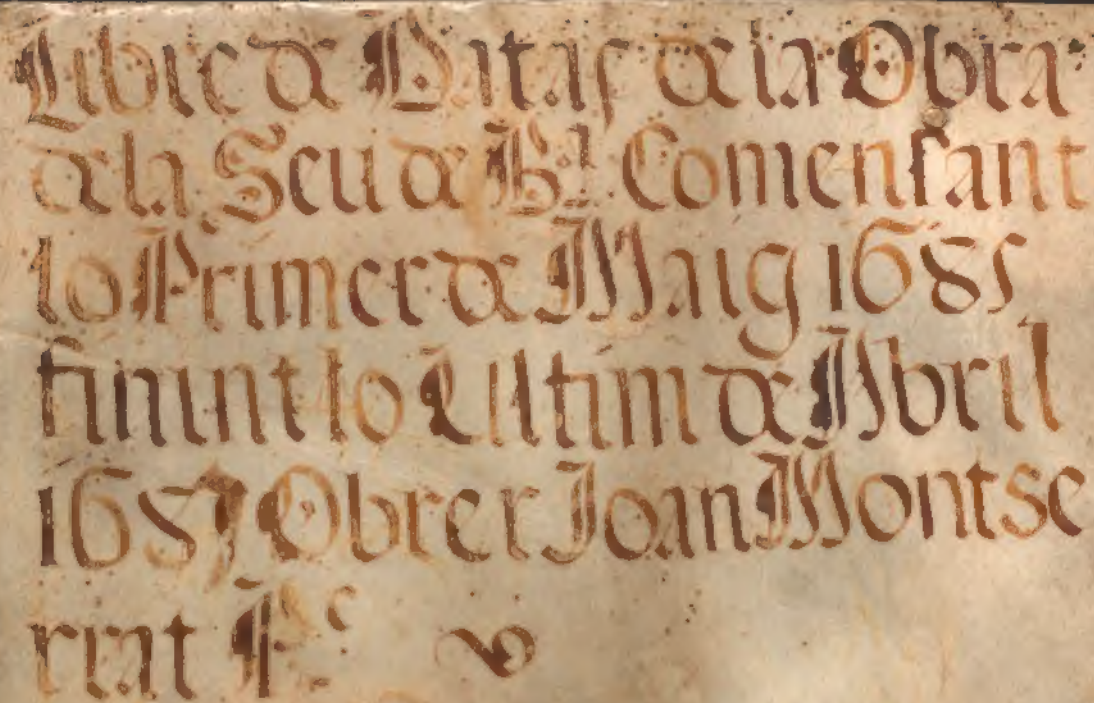 Llibre de Datas de la Obra
de la Seu de B.ª Comensant
lo Primer de Maig 1685
finint lo Ultim de Abril
1687 Obrer Joan Montse
rrat P.e